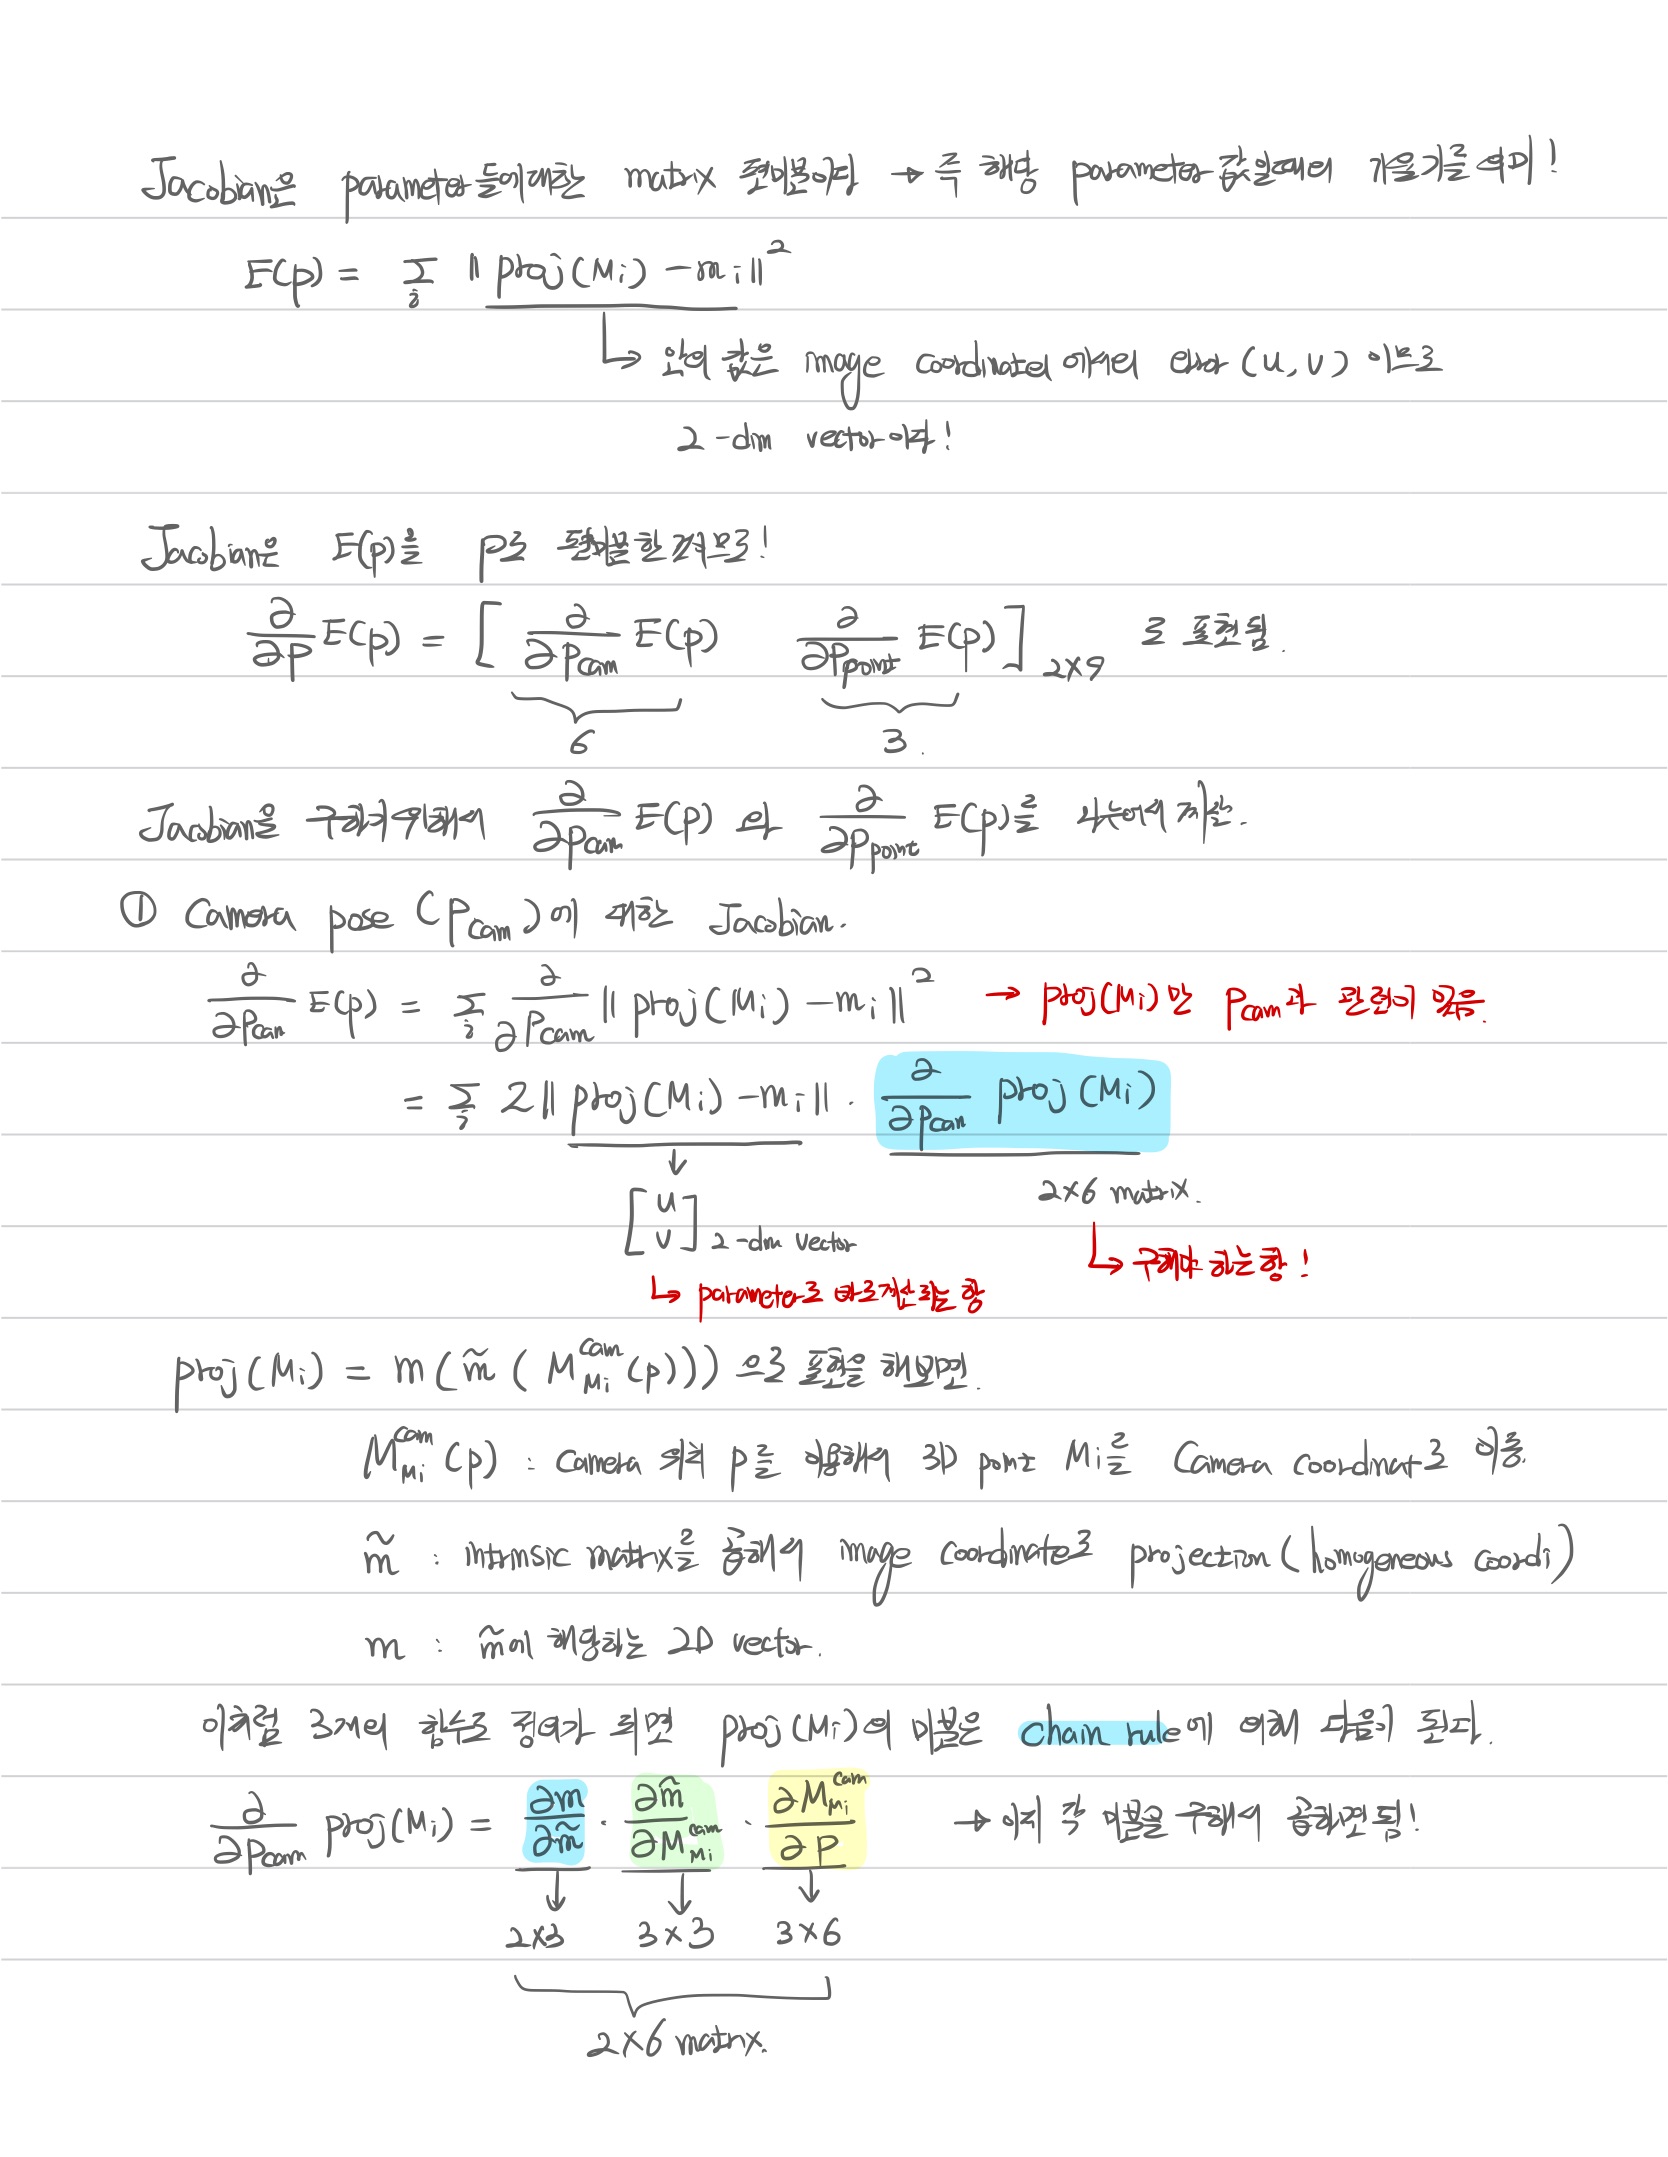 Jacobian은 parameter들에대한 matrix 편미분이다 → 즉 해당 parameter 값일때의 기울기를 의미!
E(p) = Σ_i ‖ proj(M_i) - m_i ‖²
↳ 안의 값은 image coordinate에서의 error (u, v) 이므로
2-dim vector이다!
Jacobian은 E(p)를 p로 편미분한 것이므로!
∂/∂P E(p) = [ ∂/∂P_cam E(p)  ∂/∂P_point E(p) ]_2×9 로 표현됨.
6  3.
Jacobian을 구하기위해서 ∂/∂P_cam E(p) 와 ∂/∂P_point E(p)를 나눈어서 계산.
① Camera pose (P_cam)에 대한 Jacobian.
∂/∂P_cam E(p) = Σ_i ∂/∂P_cam ‖ proj(M_i) - m_i ‖² → proj(M_i)만 P_cam과 관련이 있음.
= Σ_i 2‖ proj(M_i) - m_i ‖ · ∂/∂P_cam proj(M_i)
↓ 2×6 matrix.
[u v] 2-dim vector ↳ 구해야 하는항!
↳ parameter로 바로계산 되는 항
proj(M_i) = m ( m̃ ( M_Mi^cam (p))) 으로 표현을 해보면.
M_Mi^cam (p) : Camera 위치 p를 이용해서 3D point M_i를 Camera coordinat로 이동.
m̃ : intrinsic matrix를 통해서 image coordinate로 projection (homogeneous coordi)
m : m̃에 해당하는 2D vector.
이처럼 3개의 함수로 정의가 되면 proj(M_i)의 미분은 chain rule에 의해 다음이 된다.
∂/∂P_cam proj(M_i) = ∂m/∂m̃ · ∂m̃/∂M_Mi^cam · ∂M_Mi^cam/∂P → 이제 각 미분을 구해서 곱하면 됨!
2×3  3×3  3×6
2×6 matrix.